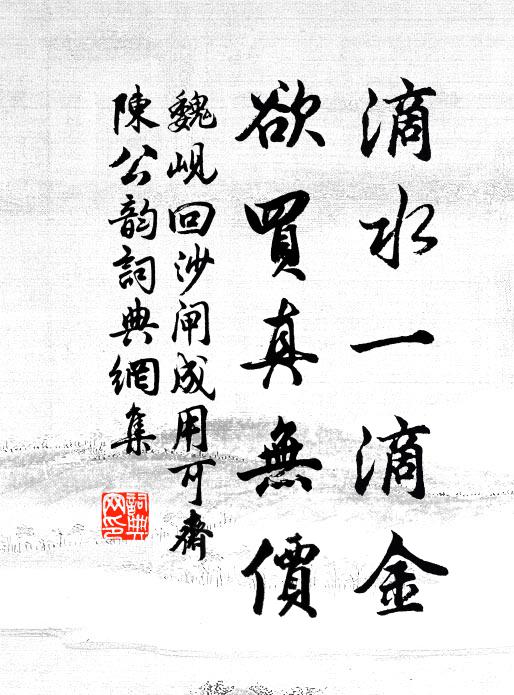 滴水一滴金
欲買真無價
魏峴回沙閘成用可齋
陳公韵詞典網集
詞典网印